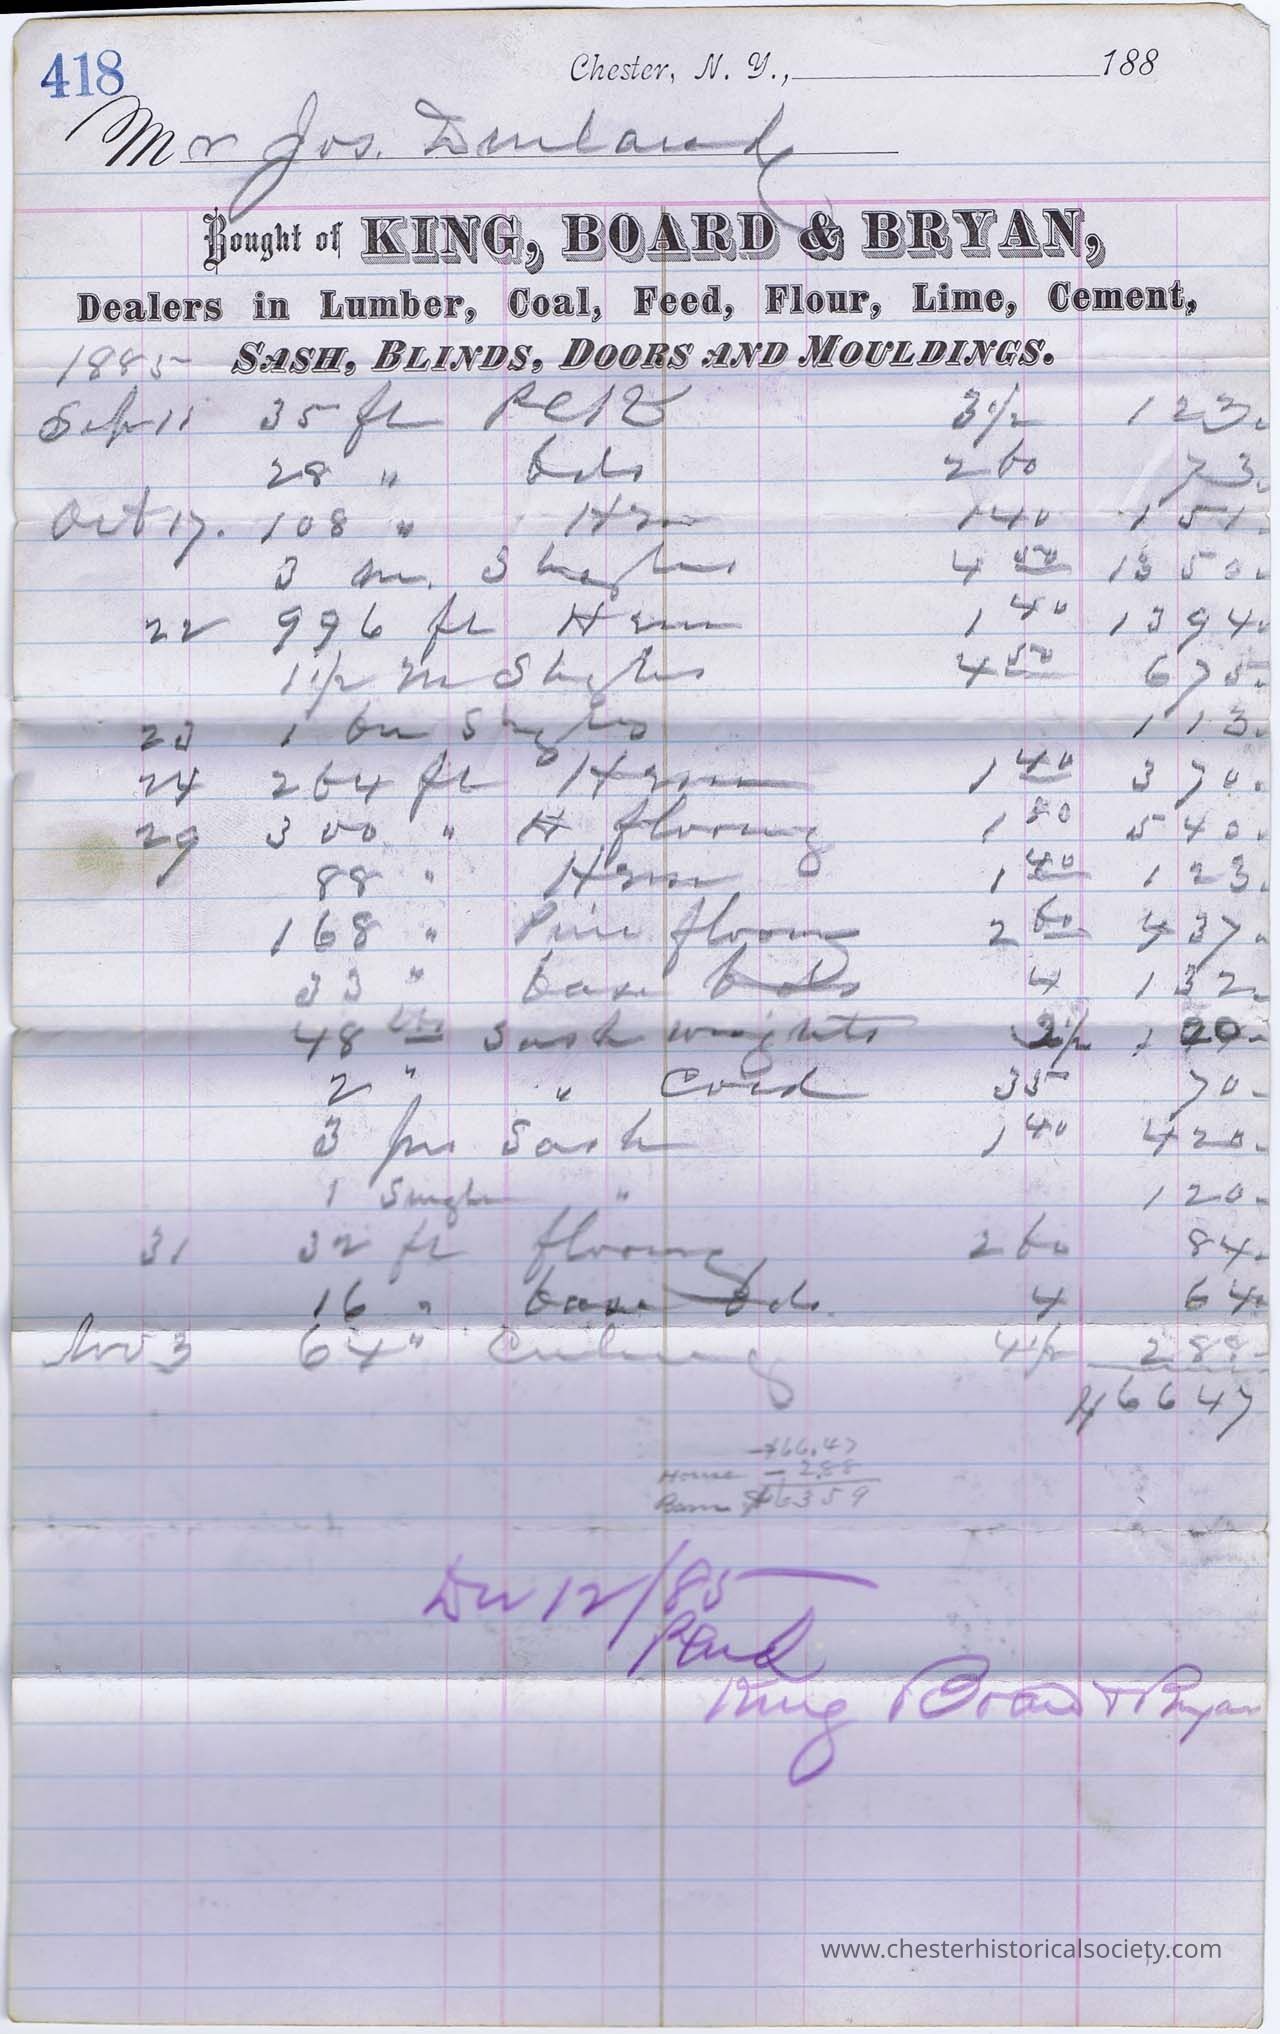 418
Chester, N. Y., 188
Mr Jos. Durland
Bought of KING, BOARD & BRYAN,
Dealers in Lumber, Coal, Feed, Flour, Lime, Cement,
SASH, BLINDS, DOORS AND MOULDINGS.
1885
Sep 11 35 ft 3 1/2 1 23.
28 " bds 2 60 73.
Oct 17. 108 " Hem 1 40 1 51.
3 m. Shingles 4 50 13 50.
22 996 ft Hem 1 40 13 94.
1 1/2 m Shgles 4 50 6 75.
23 1 bu Shgles 1 13.
24 264 ft Hem 1 40 3 70.
29 300 " H flooring 1 80 5 40.
88 " Hem 1 40 1 23.
168 " Pine flooring 2 60 4 37.
33 " base bds 4 1 32.
48 lbs Sash weights 2 1/2 1 20.
2 " " Cord 35 70.
3 prs Sash 1 40 4 20.
1 Single " 1 20.
31 32 ft flooring 2 60 84.
16 " base bds. 4 64.
Nov 3 64 " 4 1/2 2 88.
$66 47
$66.47
House - 2.88
Barn $63 59
Dec 12/85
Paid
King Board & Bryan
www.chesterhistoricalsociety.com